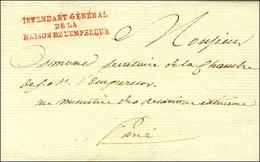 INTENDANT GÉNÉRAL
DE LA
MAISON DE L'EMPEREUR
Monsieur
Desmone secrétaire de la Chambre
de l'Empereur
au ministère des relations extérieures
Paris